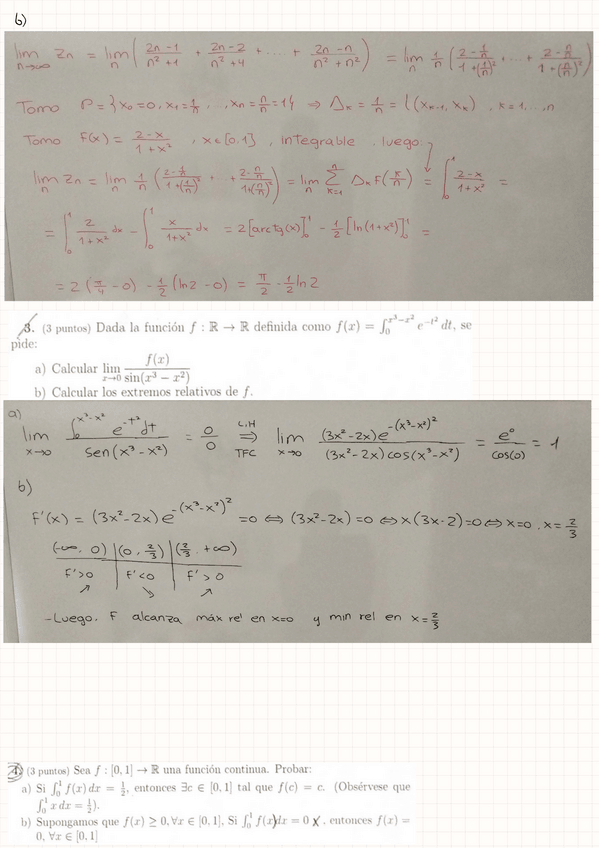 b)
lim_{n→∞} Zn = lim_n ( (2n-1)/(n²+1) + (2n-2)/(n²+4) + .... + (2n-n)/(n²+n²) ) = lim_n 1/n ( (2-1/n)/(1+(1/n)²) + ... + (2-n/n)/(1+(n/n)²) )
Tomo P = { x₀=0, x₁=1/n, ..., xn=n/n=1 } ⇒ Δκ = 1/n = l(xκ-1, xκ), κ=1, .., n
Tomo f(x) = (2-x)/(1+x²), x∈[0,1], integrable, luego:
lim_n Zn = lim_n 1/n ( (2-1/n)/(1+(1/n)²) + .. + (2-n/n)/(1+(n/n)²) ) = lim_n Σ_{κ=1}^{n} Δκ f(κ/n) = ∫₀¹ (2-x)/(1+x²) =
= ∫₀¹ 2/(1+x²) dx - ∫₀¹ x/(1+x²) dx = 2[arctg(x)]₀¹ - 1/2 [ln(1+x²)]₀¹ =
= 2(π/4 - 0) - 1/2 (ln2 - 0) = π/2 - 1/2 ln2
3. (3 puntos) Dada la función f : ℝ → ℝ definida como f(x) = ∫₀^{x³-x²} e^{-t²} dt, se
pide:
a) Calcular lim_{x→0} f(x)/sin(x³ − x²)
b) Calcular los extremos relativos de f.
a)
lim_{x→0} (∫₀^{x³-x²} e^{-t²} dt)/(sen(x³-x²)) = 0/0 ⇒ (L'H, TFC) lim_{x→0} ((3x²-2x)e^{-(x³-x²)²})/((3x²-2x)cos(x³-x²)) = e⁰/cos(0) = 1
b)
f'(x) = (3x²-2x)e^{-(x³-x²)²} = 0 ⇔ (3x²-2x)=0 ⇔ x(3x-2)=0 ⇔ x=0, x=2/3
(-∞, 0) | (0, 2/3) | (2/3, +∞)
f'>0 | f'<0 | f'>0
↗ ↘ ↗
-Luego, f alcanza máx rel en x=0 y min rel en x=2/3
4. (3 puntos) Sea f : [0, 1] → ℝ una función continua. Probar:
a) Si ∫₀¹ f(x) dx = 1/2, entonces ∃c ∈ [0, 1] tal que f(c) = c. (Obsérvese que
∫₀¹ x dx = 1/2).
b) Supongamos que f(x) ≥ 0, ∀x ∈ [0, 1]. Si ∫₀¹ f(x)dx = 0 x, entonces f(x) =
0, ∀x ∈ [0, 1]